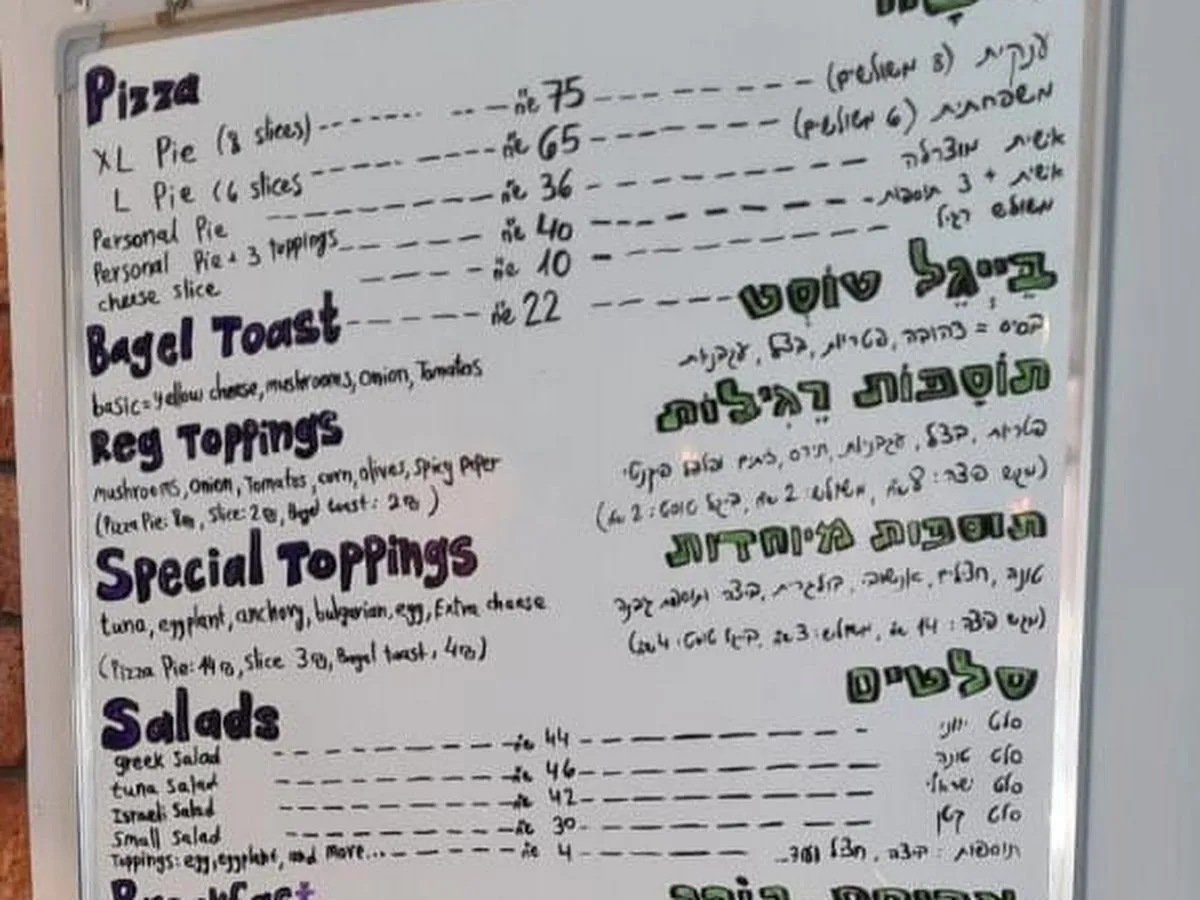 Pizza
XL Pie (8 slices) ש"ח 75 ענקית (8 משולשים)
L Pie (6 slices ש"ח 65 משפחתית (6 משולשים)
Personal Pie ש"ח 36 אישית מוצרלה
Personal Pie + 3 toppings ש"ח 40 אישית + 3 תוספות
cheese slice ש"ח 10 משולש רגיל
Bagel Toast ש"ח 22 בייגל טוסט
basic = Yellow cheese, mushrooms, Onion, Tomatos בסיס = צהובה, פטריות, בצל, עגבניות
Reg Toppings תוספות רגילות
mushrooms, Onion, Tomatos, corn, olives, Spicy Paper פטריות, בצל, עגבניות, תירס, זתים
(Pizza Pie: 8₪, Slice: 2₪, Bagel toast: 2₪) (מגש פיצה: 8 ש"ח, משולש: 2 ש"ח, בייגל טוסט: 2 ש"ח)
Special Toppings תוספות מיוחדות
tuna, eggplant, anchovy, bulgarian, egg, Extra cheese טונה, חצילים, אנשובי, בולגרית, ביצה ותוספת גבינה
(Pizza Pie: 14₪, Slice 3₪, Bagel toast, 4₪) (מגש פיצה: 14 ש"ח, משולש: 3 ש"ח, בייגל טוסט: 4 ש"ח)
Salads סלטים
greek Salad ש"ח 44 סלט יווני
tuna Salad ש"ח 46 סלט טונה
Israeli Salad ש"ח 42 סלט ישראלי
Small Salad ש"ח 30 סלט קטן
Toppings: egg, eggplant, and more... ש"ח 4 תוספות: ביצה, חציל ועוד...
Breakfast